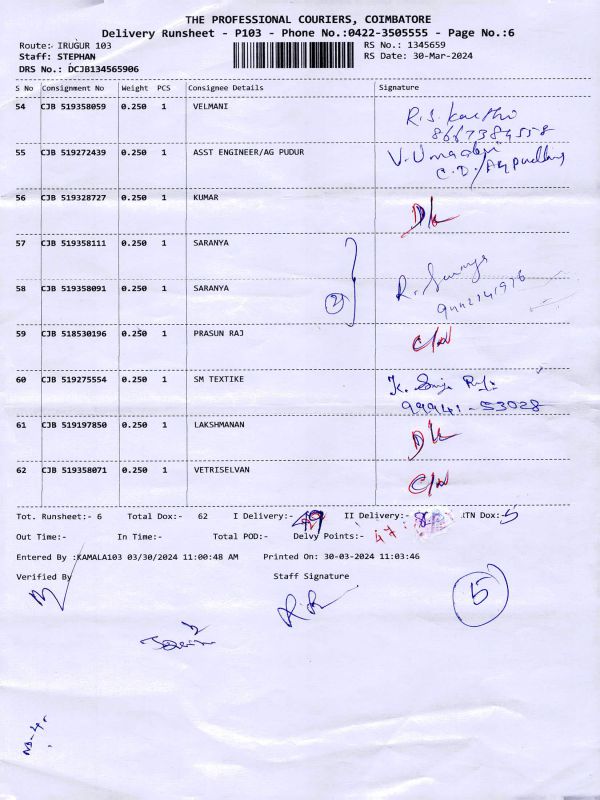 THE PROFESSIONAL COURIERS, COIMBATORE
Delivery Runsheet - P103 - Phone No.:0422-3505555 - Page No.:6
Route: IRUGUR 103 RS No.: 1345659
Staff: STEPHAN RS Date: 30-Mar-2024
DRS No.: DCJB134565906
S No Consignment No Weight PCS Consignee Details Signature
54 CJB 519358059 0.250 1 VELMANI
R.S. 8667384558
55 CJB 519272439 0.250 1 ASST ENGINEER/AG PUDUR
56 CJB 519328727 0.250 1 KUMAR D/L
57 CJB 519358111 0.250 1 SARANYA
58 CJB 519358091 0.250 1 SARANYA 2 R.
59 CJB 518530196 0.250 1 PRASUN RAJ
60 CJB 519275554 0.250 1 SM TEXTIKE K.
99941-53028
61 CJB 519197850 0.250 1 LAKSHMANAN D/L
62 CJB 519358071 0.250 1 VETRISELVAN
Tot. Runsheet:- 6 Total Dox:- 62 I Delivery:- 49 II Delivery:- RTN Dox:- 5
Out Time:- In Time:- Total POD:- Delvy Points:- 47
Entered By :KAMALA103 03/30/2024 11:00:48 AM Printed On: 30-03-2024 11:03:46
Verified By Staff Signature
5